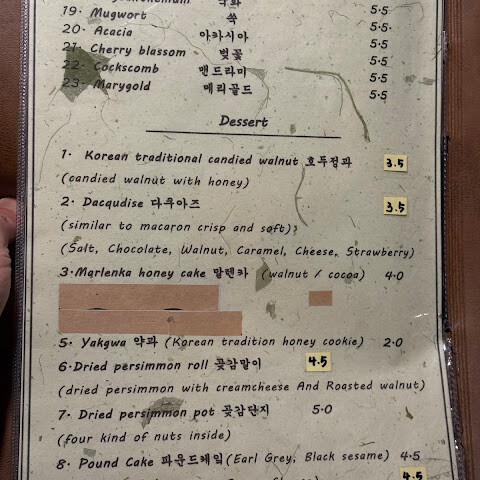 국화
19. Mugwort 쑥 5.5
20. Acacia 아카시아 5.5
21. Cherry blassom 벚꽃 5.5
22. Cockscomb 맨드라미 5.5
23. Marygold 메리골드 5.5
Dessert
1. Korean traditional candied walnut 호두정과 3.5
(candied walnut with honey)
2. Dacqudise 다쿠아즈 3.5
(similar to macaron crisp and soft)
(Salt, Chocolate, Walnut, Caramel, Cheese, Strawberry)
3. Marlenka honey cake 말렌카 (walnut / cocoa) 4.0
5. Yakgwa 약과 (Korean tradition honey cookie) 2.0
6. Dried persimmon roll 곶감말이 4.5
(dried persimmon with creamcheese And Roasted walnut)
7. Dried persimmon pot 곶감단지 5.0
(four kind of nuts inside)
8. Pound Cake 파운드케잌 (Earl Grey, Black sesame) 4.5
4.5